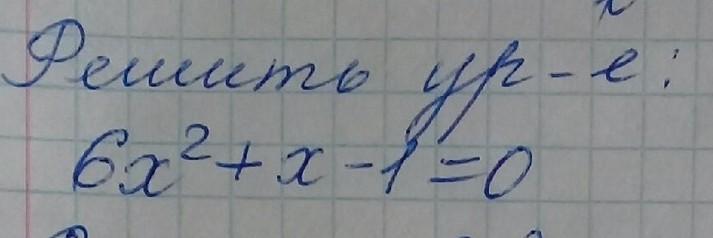 Решить ур-е:
6x²+x-1=0